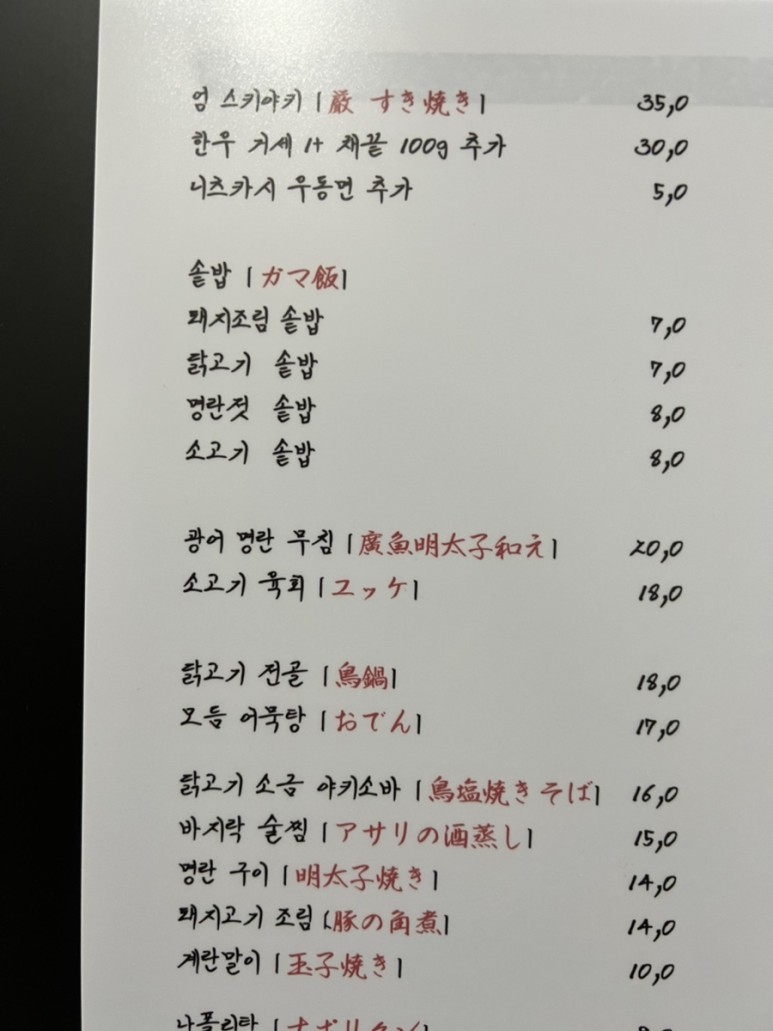 엄 스키야키 | 厳 すき焼き | 35,0
한우 거세 1+ 채끝 100g 추가 30,0
니츠카시 우동면 추가 5,0
솥밥 | ガマ飯 |
돼지조림 솥밥 7,0
닭고기 솥밥 7,0
명란젓 솥밥 8,0
소고기 솥밥 8,0
광어 명란 무침 | 廣魚明太子和え | 20,0
소고기 육회 | ユッケ | 18,0
닭고기 전골 | 鳥鍋 | 18,0
모듬 어묵탕 | おでん | 17,0
닭고기 소금 야키소바 | 鳥塩焼きそば | 16,0
바지락 술찜 | アサリの酒蒸し | 15,0
명란 구이 | 明太子焼き | 14,0
돼지고기 조림 | 豚の角煮 | 14,0
계란말이 | 玉子焼き | 10,0
나폴리탄 | ナポリタン